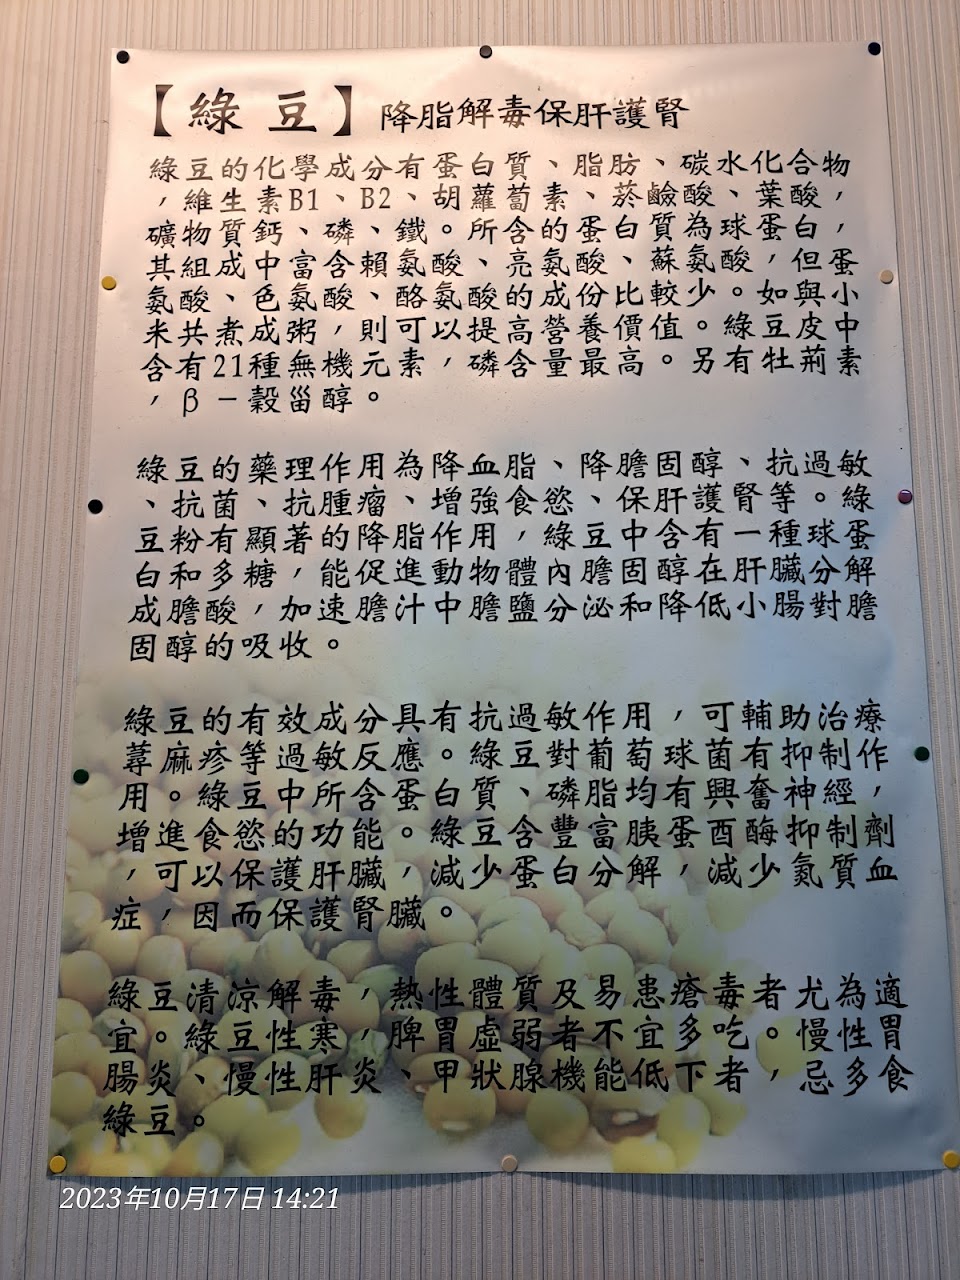 【綠豆】降脂解毒保肝護腎
綠豆的化學成分有蛋白質、脂肪、碳水化合物
，維生素B1、B2、胡蘿蔔素、菸鹼酸、葉酸，
礦物質鈣、磷、鐵。所含的蛋白質為球蛋白，
其組成中富含賴氨酸、亮氨酸、蘇氨酸，但蛋
氨酸、色氨酸、酪氨酸的成份比較少。如與小
米共煮成粥，則可以提高營養價值。綠豆皮中
含有21種無機元素，磷含量最高。另有牡荊素
，β－穀甾醇。
綠豆的藥理作用為降血脂、降膽固醇、抗過敏
、抗菌、抗腫瘤、增強食慾、保肝護腎等。綠
豆粉有顯著的降脂作用，綠豆中含有一種球蛋
白和多糖，能促進動物體內膽固醇在肝臟分解
成膽酸，加速膽汁中膽鹽分泌和降低小腸對膽
固醇的吸收。
綠豆的有效成分具有抗過敏作用，可輔助治療
蕁麻疹等過敏反應。綠豆對葡萄球菌有抑制作
用。綠豆中所含蛋白質、磷脂均有興奮神經，
增進食慾的功能。綠豆含豐富胰蛋酉酶抑制劑
，可以保護肝臟，減少蛋白分解，減少氮質血
症，因而保護腎臟。
綠豆清涼解毒，熱性體質及易患瘡毒者尤為適
宜。綠豆性寒，脾胃虛弱者不宜多吃。慢性胃
腸炎、慢性肝炎、甲狀腺機能低下者，忌多食
綠豆。
2023年10月17日 14:21